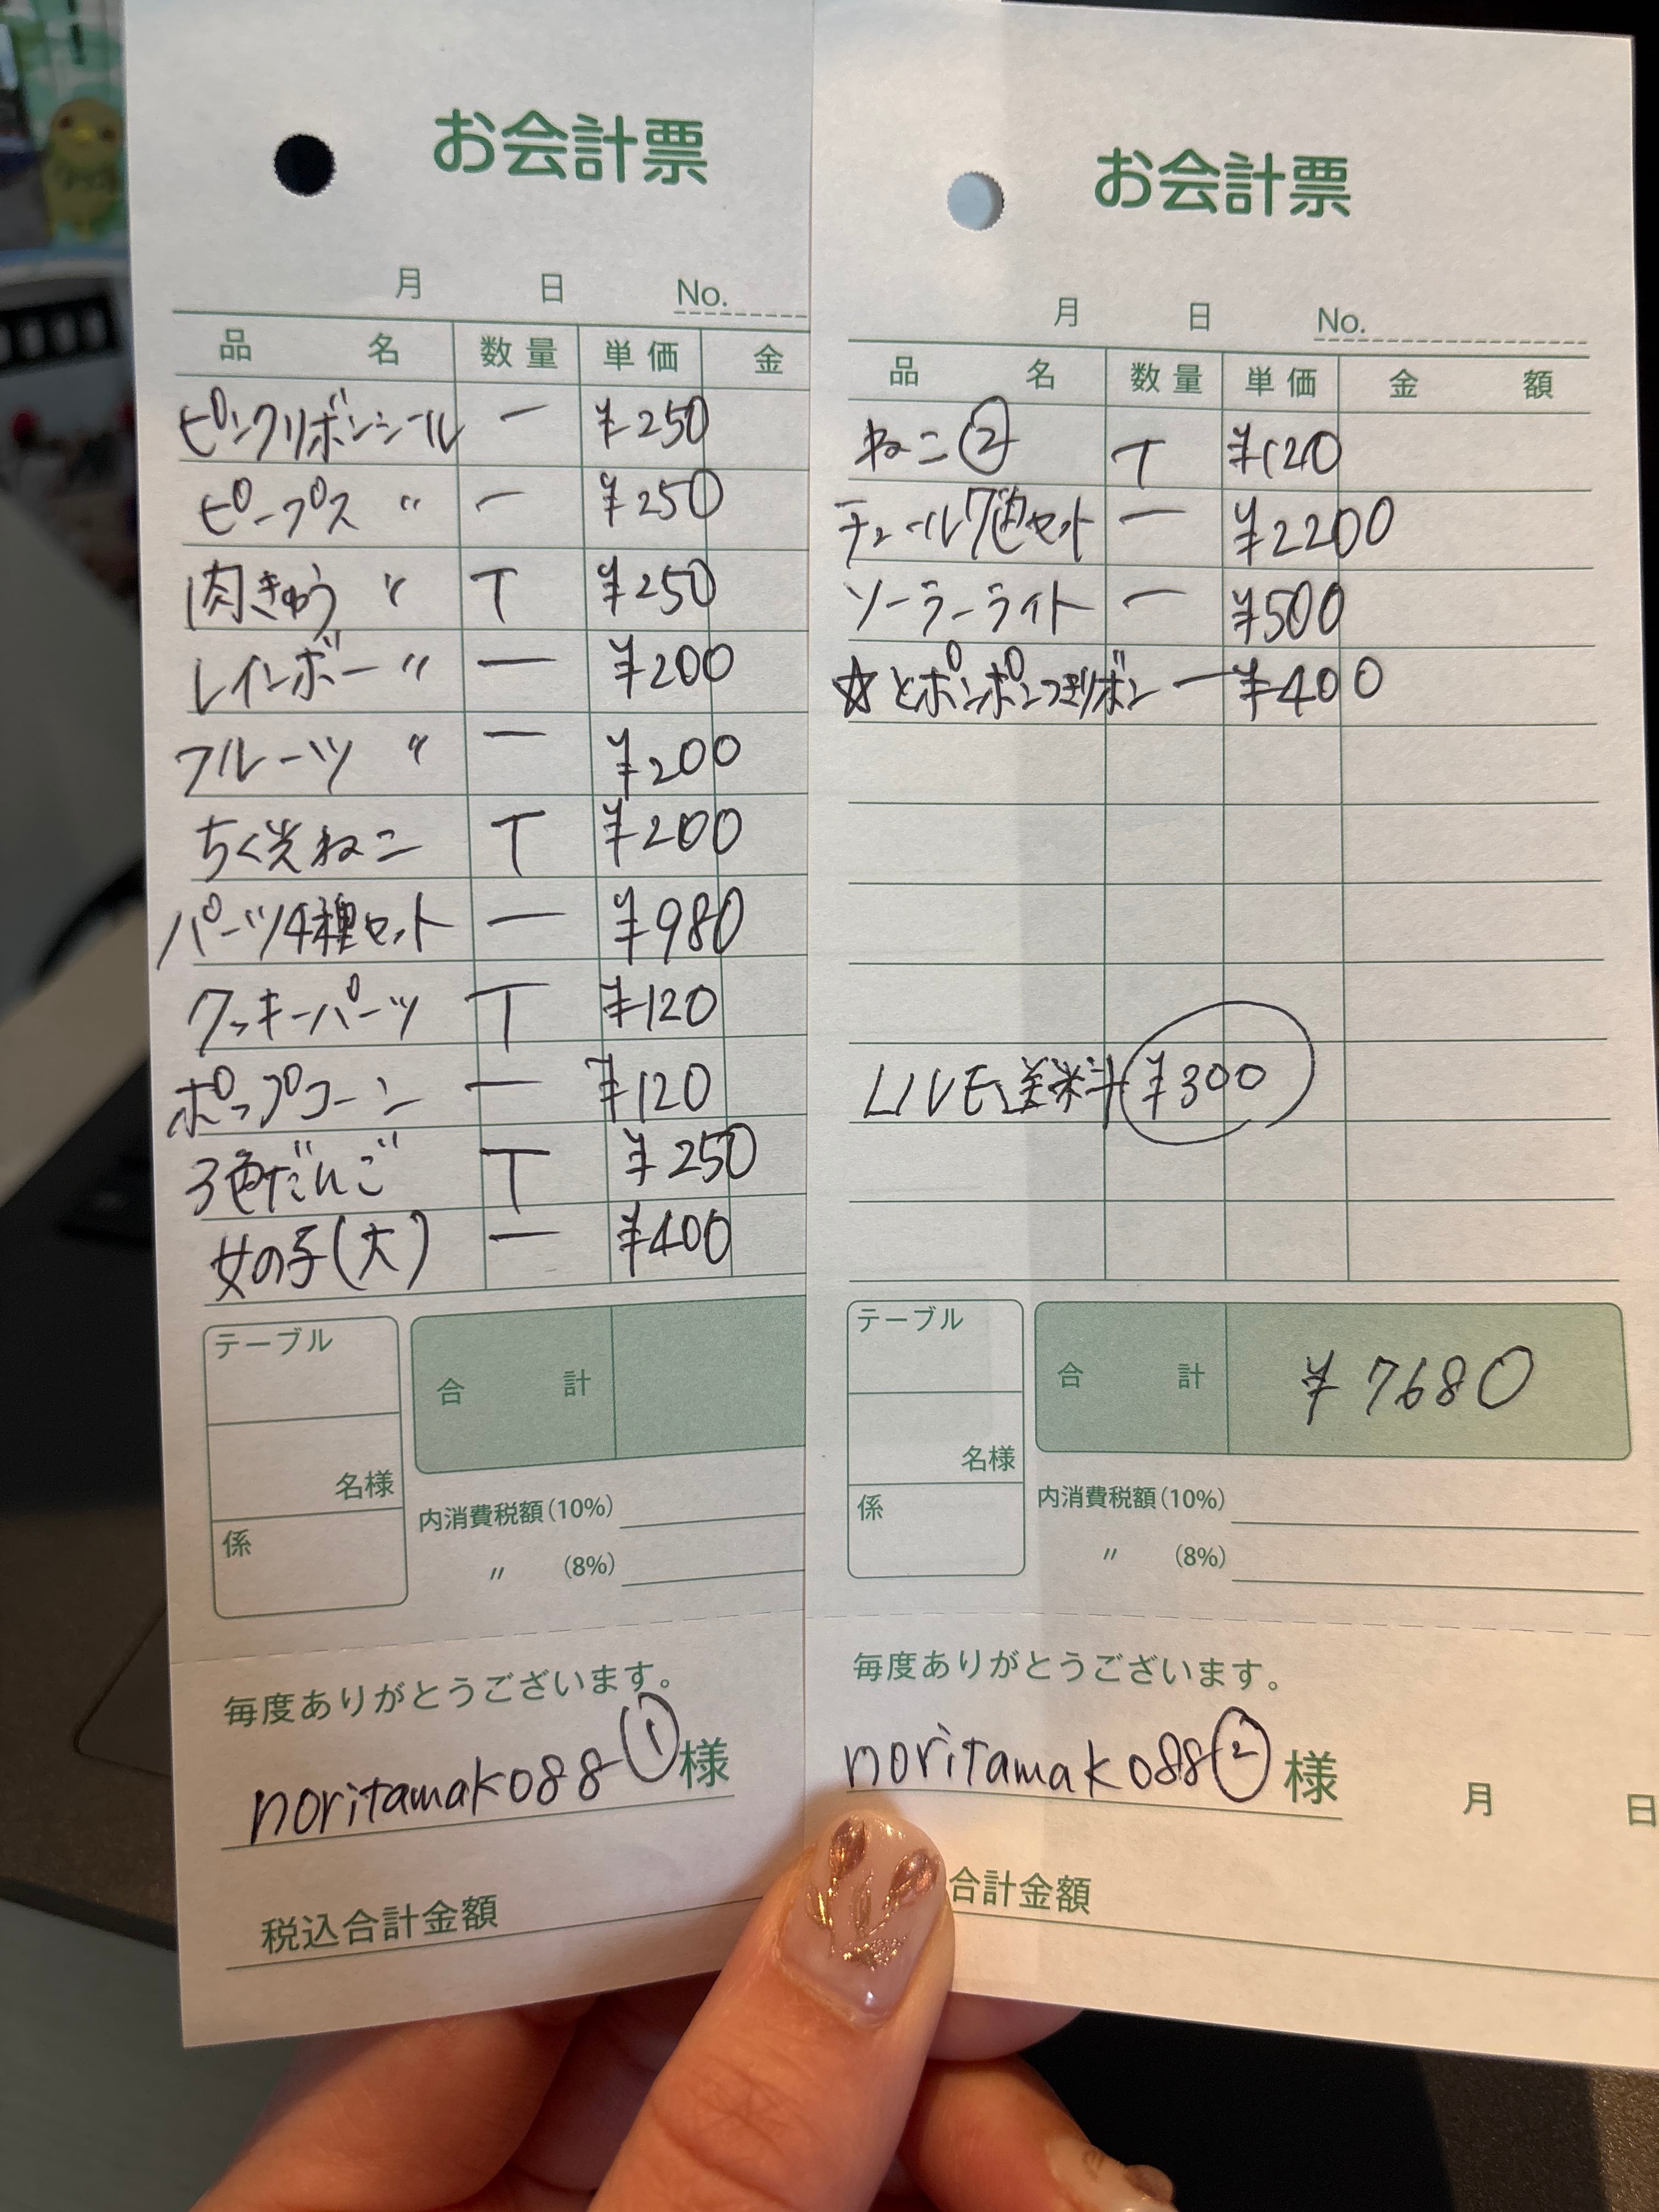 お会計票
月 日 No.
品名 数量 単価 金
ピンクリボンシール 一 ¥250
ピープス 〃 一 ¥250
肉きゅう 〃 T ¥250
レインボー 〃 一 ¥200
フルーツ 〃 一 ¥200
ちく光ねこ T ¥200
パーツ4種セット 一 ¥980
クッキーパーツ T ¥120
ポップコーン 一 ¥120
3色だんご T ¥250
女の子(大) 一 ¥400
テーブル
名様
係
合計
内消費税額(10%)
〃 (8%)
毎度ありがとうございます。
noritamako88① 様
税込合計金額
お会計票
月 日 No.
品名 数量 単価 金額
ねこ② T ¥120
チュール7色セット 一 ¥2200
ソーラーライト 一 ¥500
☆とポンポンつきリボン 一 ¥400
LIVE送料 ¥300
テーブル
名様
係
合計 ¥7680
内消費税額(10%)
〃 (8%)
毎度ありがとうございます。
noritamako88② 様 月 日
合計金額